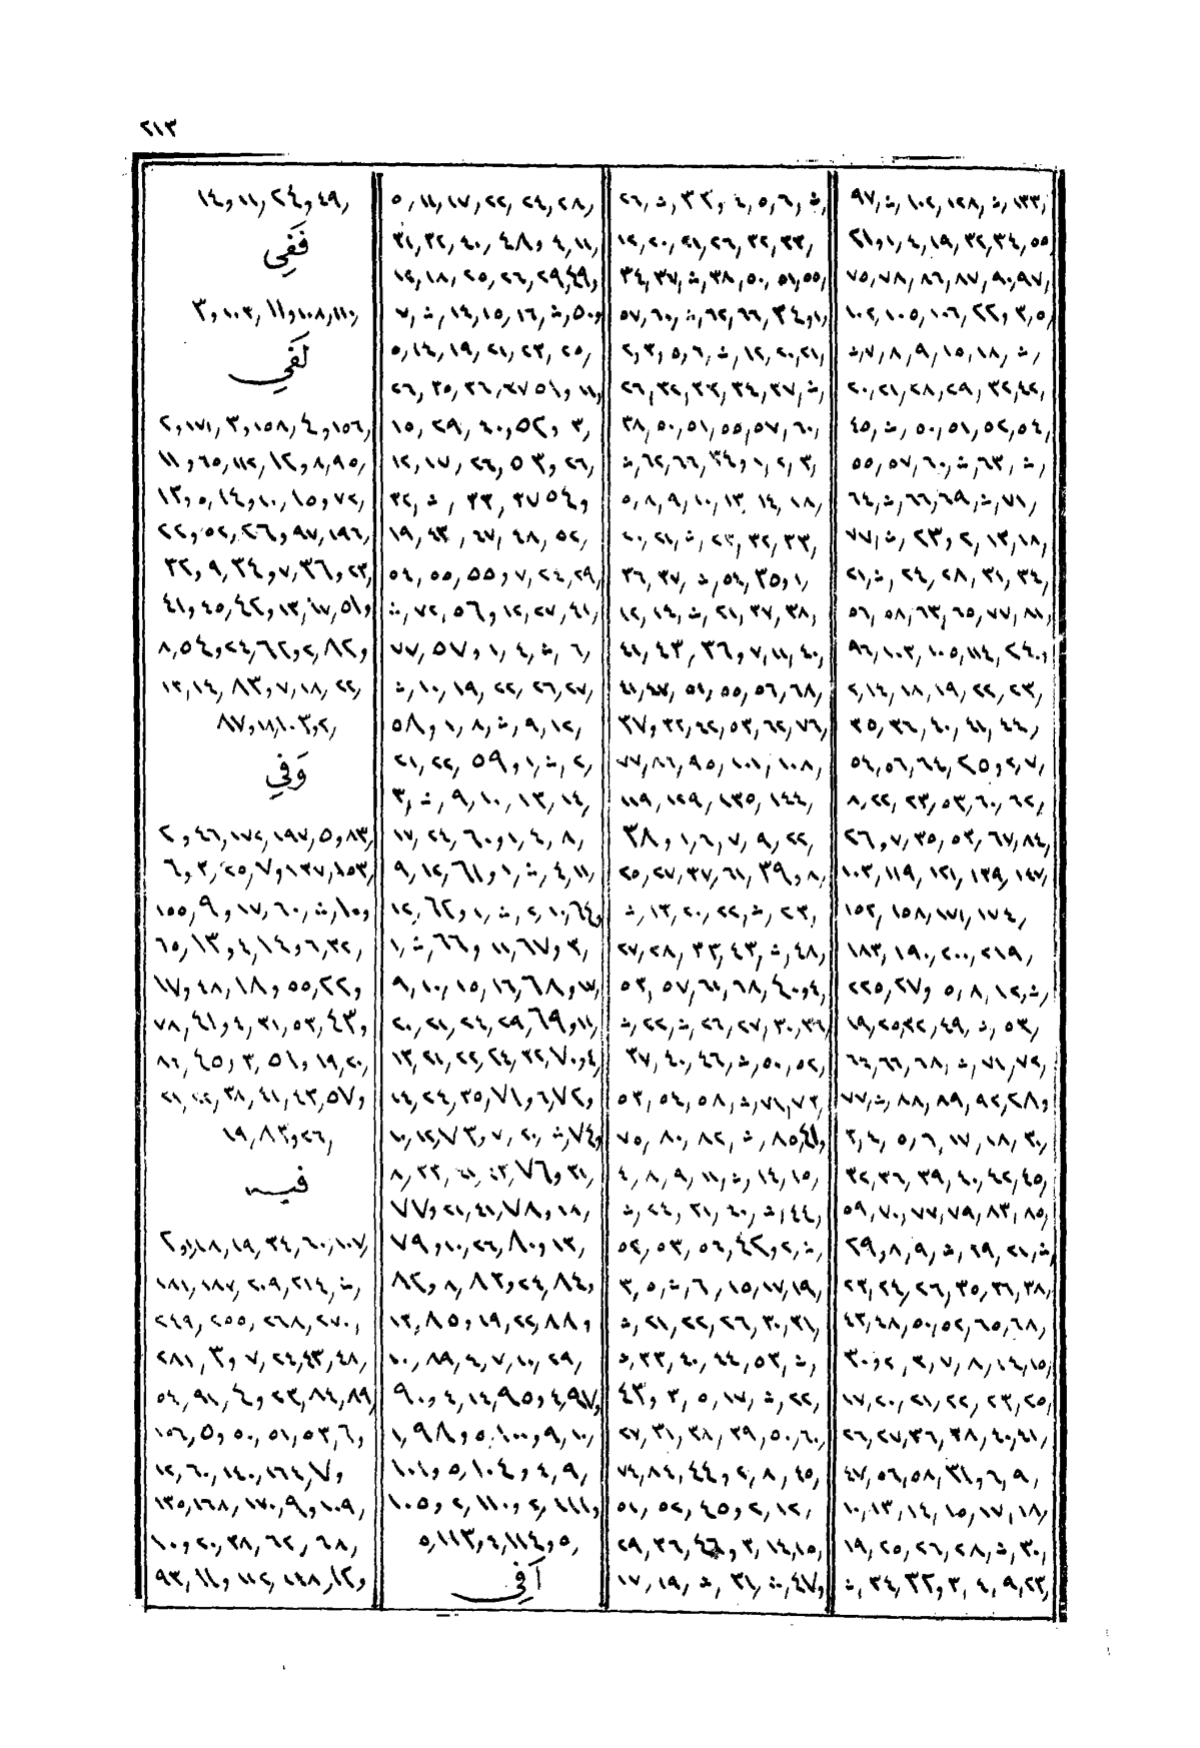 ٢١٣
٩٧,ث,١٠٢,١٢٨,ث,١٣٣,
٢١و١,٤,١٩,٣٢,٣٤,٥٥
٧٥,٧٨,٨٦,٨٧,٩٠,٩٧,
١٠٢,١٠٥,١٠٦,٢٢و٣,٥,
ث,٧,٨,٩,١٥,١٨,ث,
٢٠,٢١,٢٨,٢٩,٣٢,٤٢,
٤٥,ث,٥٠,٥١,٥٢,٥٤,
٥٥,٥٧,٦٠,ث,٦٣,ث,
٦٤,ث,٦٦,٦٩,ث,٧١,
٧٧,ث,٢٣و٢,١٣,١٨,
٢١,ث,٢٤,٢٨,٣١,٣٤,
٥٦,٥٨,٦٣,٦٥,٧٧,٨١,
٩٦,١٠٣,١٠٥,١١٤,٢٤و
٢,١٤,١٨,١٩,٢٢,٢٣,
٣٥,٣٦,٤٠,٤١,٤٤,
٥٤,٥٦,٦٤,٢٥و٢,٧,
٨,٢٢,٢٣,٥٣,٦٠,٦٢,
٢٦و٧,٣٥,٥٢,٦٧,٨٤,
١٠٣,١١٩,١٢١,١٣٩,١٤٧,
١٥٢,١٥٨,١٧١,١٧٤,
١٨٣,١٩٠,٢٠٠,٢١٩,
٢٢٥,٢٧و٥,٨,١٢,ث,
١٩,٢٥,٣٢,٤٩,ث,٥٣,
٦٤,٦٦,٦٨,ث,٧١,٧٩,
٧٧,ث,٨٨,٨٩,٩٢,٢٨و
٣,٤,٥,٦,١٧,١٨,٣٠,
٣٢,٣٦,٣٩,٤٠,٤٢,٤٥,
٥٩,٧٠,٧٧,٧٩,٨٣,٨٥,
٢٩و٨,٩,ث,١٩,٢١,ث,
٢٢,٢٤,٢٦,٣٥,٣٦,٣٨,
٤٣,٤٨,٥٠,٥٢,٦٥,٦٨,
٣٠و٢,٣,٧,٨,١٤,١٥,
١٧,٢٠,٢١,٢٢,٢٣,٢٥,
٢٦,٢٧,٣٦,٣٨,٤٠,٤١,
٤٧,٥٦,٥٨,٣١و٦,٩,
١٠,١٣,١٤,١٥,١٧,١٨,
١٩,٢٥,٢٦,٢٨,ث,٣٠,
ث,٣٤,٣٢و٣,٤,٩,٢٣,
٢٦,ث,٣٣و٤,٥,٦,ث,
١٢,٢٠,٢١,٢٦,٣٢,٣٣,
٣٤,٣٧,ث,٣٨,٥٠,٥١,٥٥,
٥٧,٦٠,ث,٦٢,٦٦,٣٤و١,
٢,٣,٥,٦,ث,١٢,٢٠,٢١,
٢٦,٣٢,٣٣,٣٤,٣٧,ث,
٣٨,٥٠,٥١,٥٥,٥٧,٦٠,
ث,٦٢,٦٦,٣٤و١,٢,٣,
٥,٨,٩,١٠,١٣,١٤,١٨,
٢٠,٢١,ث,٢٣,٣٢,٣٣,
٣٦,٣٧,ث,٥٤,٣٥و١,
١٢,١٤,ث,٢١,٣٧,٣٨,
٤١,٤٣,٣٦و٧,١١,٤٠,
٤١,٤٧,٥١,٥٥,٥٦,٦٨,
٣٧و٢٢,٢٤,٥٣,٦٢,٧٦,
٧٧,٨٦,٩٥,١٠١,١٠٨,
١١٩,١٢٩,١٣٥,١٤٤,
٣٨و١,٦,٧,٩,٢٢,
٢٥,٢٧,٣٧,٦١,٣٩و٨,
ث,١٣,٢٠,٢٢,ث,٢٣,
٢٧,٢٨,٣٢,٤٣,ث,٤٨,
٥٣,٥٧,٦١,٦٨,٤٠و٤,
ث,٢٢,ث,٢٦,٢٧,٣٠,٣٦,
٣٧,٤٠,٤٦,ث,٥٠,٥٢,
٥٣,٥٤,٥٨,ث,٧١,٧٢,
٧٥,٨٠,٨٢,ث,٨٥,٤١و
٤,٨,٩,١١,ث,١٤,١٥,
ث,٢٤,٣١,٤٠,ث,٤٤,
٥٢,٥٣,٥٦,٤٢و٢,ث,
٣,٥,ث,٦,١٥,١٧,١٩,
ث,٢١,٢٢,٢٦,٣٠,٣١,
ث,٣٣,٤٠,٤٤,٥٣,ث,
٤٣و٣,٥,١٧,ث,٢٢,
٢٧,٣١,٣٨,٣٩,٥٠,٦٠,
٧٤,٨٤,٤٤و٢,٨,٤٥,
٥١,٥٢,٤٥و٢,١٢,
٢٩,٣٦,٤٦و٣,١٤,١٥,
١٧,١٩,ث,٣١,ث,٤٧و
٥,١١,١٧,٢٢,٢٤,٢٨,
٣١,٣٢,٤٠,٤٨و٤,١١,
١٢,١٨,٢٥,٢٦,٢٩,٤٩و
٧,ث,١٤,١٥,١٦,ث,٥٠و
٥,١٤,١٩,٢١,٢٣,٢٥,
٢٦,٣٥,٣٦,٣٧٥١و١١,
١٥,٢٩,٤٠,٥٢و٣,
١٢,١٧,٢٦,٥٣و٢٦,
٣٢,ث,٣٣,٣٧٥٤و
١٩,٤٣,٤٧,٤٨,٥٢,
٥٤,٥٥,٥٥و٧,٢٤,٢٩,
ث,٧٢,٥٦و١٢,٢٧,٤١,
٧٧,٥٧و١,٤,ث,٦,
ث,١٠,١٩,٢٢,٢٦,٢٧,
٥٨و١,٨,ث,٩,١٢,
٢١,٢٢,٥٩و١,ث,٢,
٣,ث,٩,١٠,١٣,١٤,
١٧,٢٤,٦٠و١,٤,٨,
٩,١٢,٦١و١,ث,٤,١١,
١٢,٦٢و١,ث,٢,١٠,٦٤و
١,ث,٦٦و١١,٦٧و٣,
٩,١٠,١٥,١٦,٦٨و١٧,
٢٠,٢١,٢٤,٢٩,٦٩و١١,
١٣,٢١,٢٢,٢٤,٣٢,٧٠و٤,
١٤,٢٤,٣٥,٧١و٦,٧٢و
١٠,١٢,٧٣و٧,٢٠,ث,٧٤و
٧٦و٣١,
٧٧و٢١,٤١,٧٨و١٨,
٧٩و١٠,٢٦,٨٠و١٣,
٨٢و٨,٨٣و٢٤,٨٤و
١٣,٨٥و١٩,٢٢,٨٨و
١٠,٨٩و٤,٧,١٠,٢٩,
٩٠و٤,١٤,٩٥و٤,٩٧و
١,٩٨و٥,١٠٠و٩,١٠,
١٠١و٥,١٠٤و٤,٩,
١٠٥و٢,١١٠و٢,١١١و
٥,١١٣و٤,١١٤و٥,
أفي
١٤و١١,٢٤و٤٩,
ففي
٣و١٠٣,١١و١٠٨,١١٠,
لفي
٢و١٧١,٣و١٥٨,٤و١٥٦,
١١و٦٥,١١٢,١٢و٨,٩٥,
١٣و٥,١٤و١٠,١٥و٧٢,
٢٢و٥٢,٢٦و٩٧,١٩٦,
٣٢و٩,٣٤و٧,٣٦و٢٣,
٤١و٤٥,٤٢و١٣,١٧,٥١و
٨,٥٤و٢٤,٦٢و٢,٨٢و
١٣,١٤,٨٣و٧,١٨,٢٢,
٨٧و١٨,١٠٣و٢,
وفي
٢و٤٦,١٧٢,١٩٧,٥و٨٣,
٦و٣,٢٥,٧و١٣٧,١٥٣,
١٥٥,٩و١٧,٦٠,ث,١٠و
٦٥,١٣و٤,١٤و٦,٣٢,
١٧و٤٨,١٨و٥٥,٢٢و
٧٨,٤١و٤,٣١,٥٣,٤٣و
٨٦,٤٥و٣,٥١و١٩,٢٠,
٢١,٢٢,٣٨,٤١,٤٣,٥٧و
١٩,٨٣و٢٦,
فيه
٢و١٨,١٩,٣٤,٦٠,١٠٧,
١٨١,١٨٧,٢٠٩,٢١٤,ث,
٢٤٩,٢٥٥,٢٦٨,٢٧٠,
٢٨١,٣و٧,٢٤,٤٣,٤٨,
٥٤,٩١,٤و٢٣,٨٤,٨٩,
١٥٦,٥و٥٠,٥١,٥٣,٦و
١٢,٦٠,١٤٠,١٦٤,٧و
١٣٥,١٦٨,١٧٠,٩و١٠٩,
١٠و٢٠,٣٨,٦٢,٦٨,
٩٣,١١و١١٢,١٤٨,١٢و